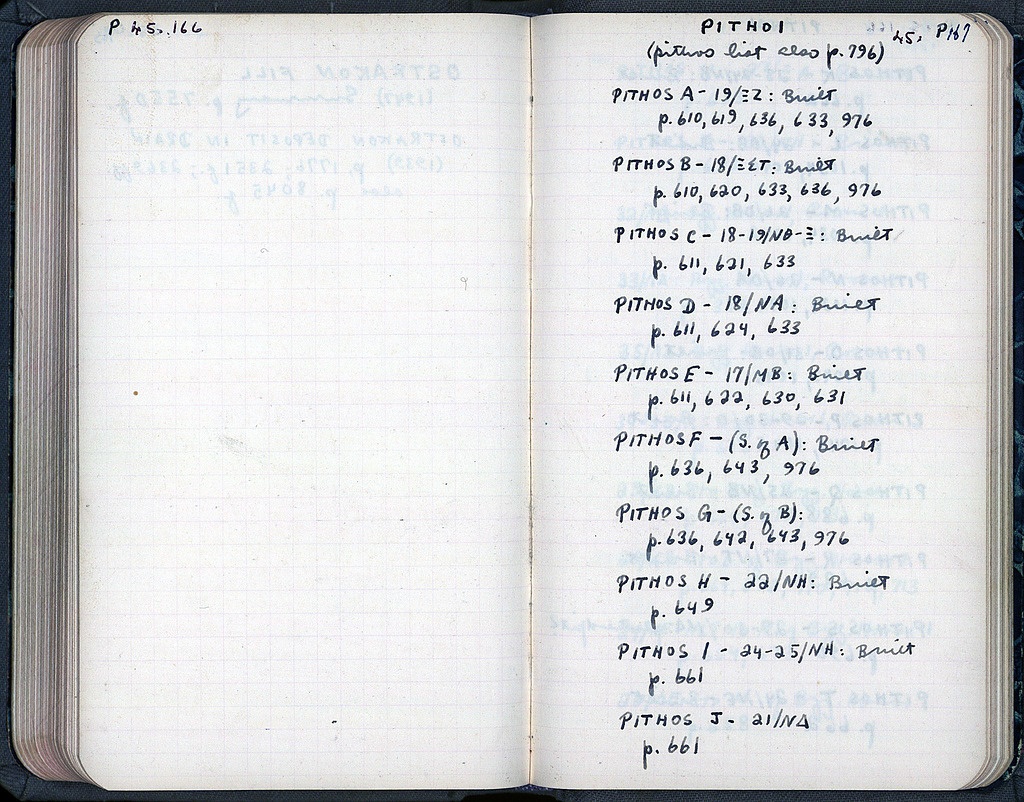 P 45. 166
PITHOI
45. P 167
(pithos list also p. 796)
PITHOS A - 19/ΞΖ: Built
p. 610, 619, 636, 633, 976
PITHOS B - 18/ΞΣΤ: Built
p. 610, 620, 633, 636, 976
PITHOS C - 18-19/ΝΘ-Ξ: Built
p. 611, 621, 633
PITHOS D - 18/ΝΑ: Built
p. 611, 624, 633
PITHOS E - 17/ΜΒ: Built
p. 611, 622, 630, 631
PITHOS F - (S. of A): Built
p. 636, 643, 976
PITHOS G - (S. of B):
p. 636, 642, 643, 976
PITHOS H - 22/ΝΗ: Built
p. 649
PITHOS I - 24-25/ΝΗ: Built
p. 661
PITHOS J - 21/ΝΔ
p. 661